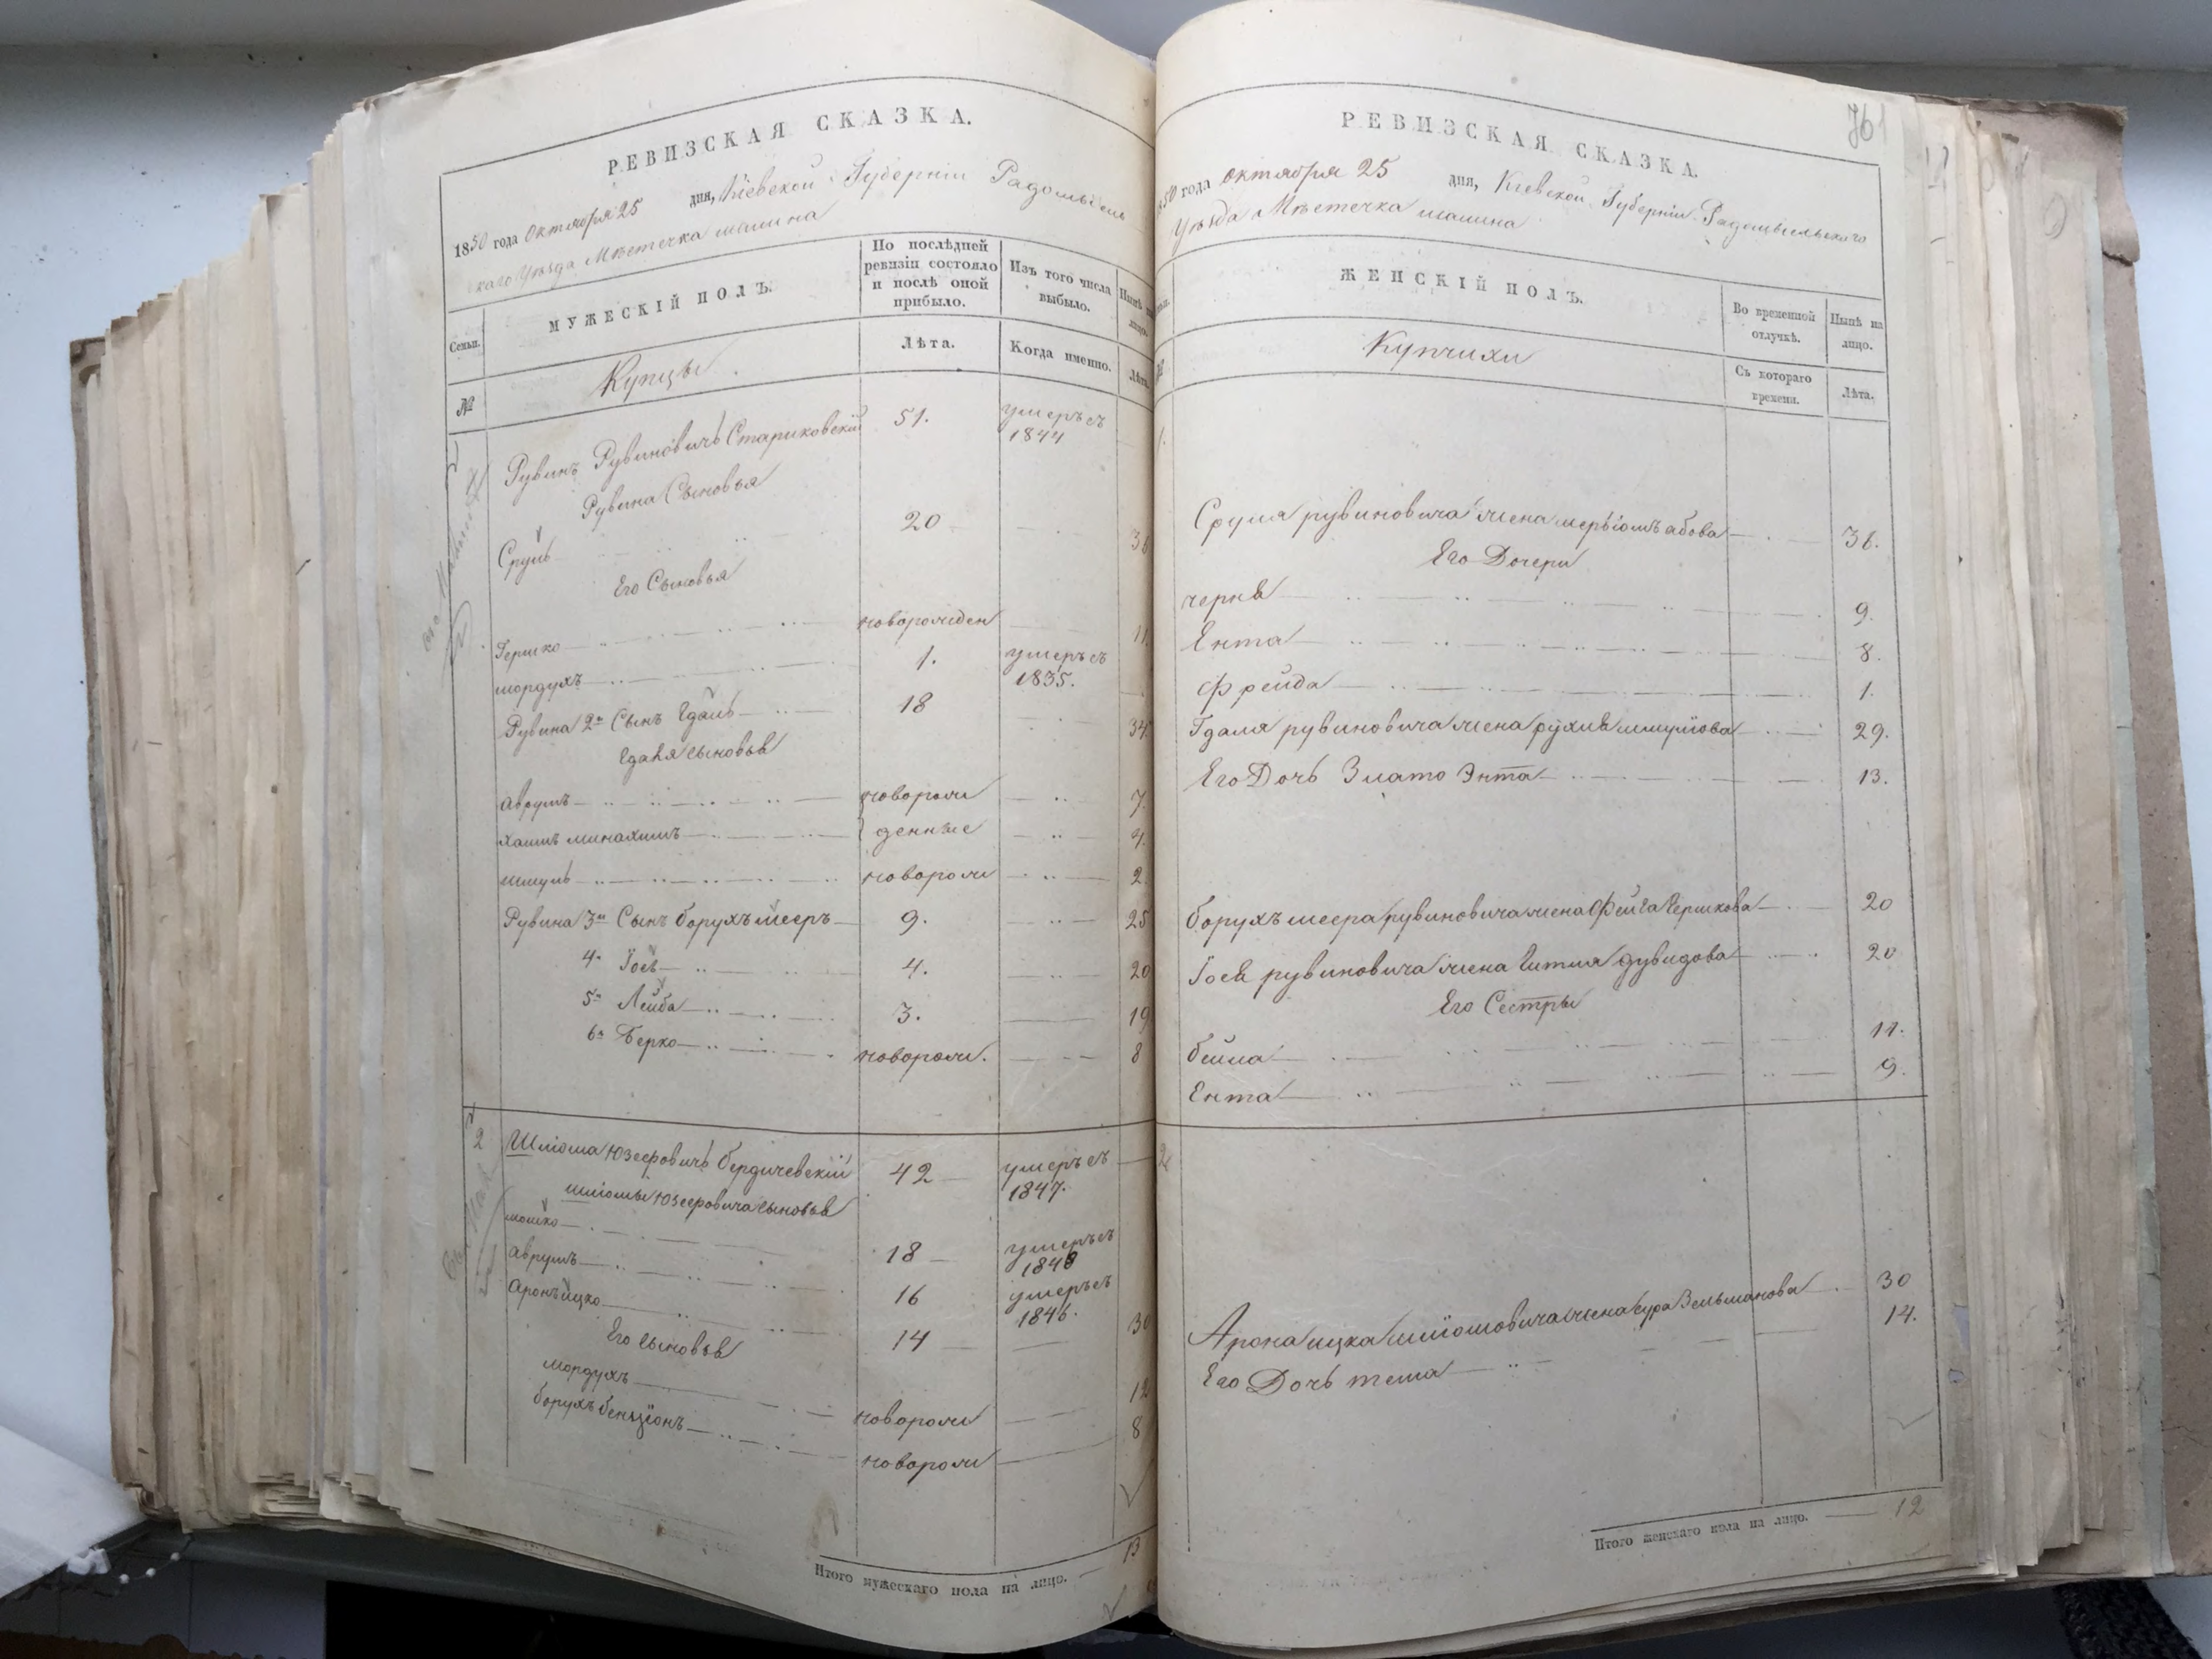 РЕВИЗСКАЯ СКАЗКА.
1850 года Октября 25 дня, Кіевской Губерніи Радомысль
скаго Уѣзда Мѣстечка малина
Семьи.
МУЖЕСКІЙ ПОЛЪ.
По послѣдней ревизіи состояло и послѣ оной прибыло.
Изъ того числа выбыло.
Нынѣ на лицо.
№
Купцы
Лѣта.
Когда именно.
Лѣта.
Рувинъ Рувиновичъ Стариковскій 51. умеръ съ 1844
Рувина Сыновья
Сруль 20 36
Его Сыновья
Гершко новорожден 11
мордухъ 1. умеръ съ 1835.
Рувина 2й Сынъ Гдаль 18 34
Гдаля сыновья
аврумъ новорож 7.
хаимъ минахимъ денные 4.
шмуль новорож 2.
Рувина 3й Сынъ борухъ мееръ 9. 25
4й Іось 4. 20
5й Лейба 3. 19
6й Берко новорож. 8
2 Шліома Юзефовичъ бердичевскій 42 умеръ съ 1847.
шліомы Юзефовича сыновья
мошко 18 умеръ съ 1848
аврумъ 16 умеръ съ 1846.
аронъ ицко 14 30
Его сыновья
мордухъ новорож 12
борухъ бенціонъ новорож 8
Итого мужескаго пола на лицо. 13
761
РЕВИЗСКАЯ СКАЗКА.
1850 года октября 25 дня, Кіевской Губерніи Радомысльскаго
Уѣзда Мѣстечка малина
ЖЕНСКІЙ ПОЛЪ.
Во временной отлучкѣ.
Нынѣ на лицо.
Купчихи
Съ котораго времени.
Лѣта.
1.
Сруля рувиновича жена меріомъ абова 36.
Его Дочери
черня 9.
Ента 8.
Фрейда 1.
Гдаля рувиновича жена рухля шмулова 29.
Его Дочь Злато Энта 13.
борухъ меера рувиновича жена Фейга Гершкова 20
Іося рувиновича жена Гитля дувидова 20
Его Сестры
бейла 11.
Ента 9.
2
Арона ицка шліомовича жена сура Зельманова 30
Его Дочь тема 14.
Итого женскаго пола на лицо. 12